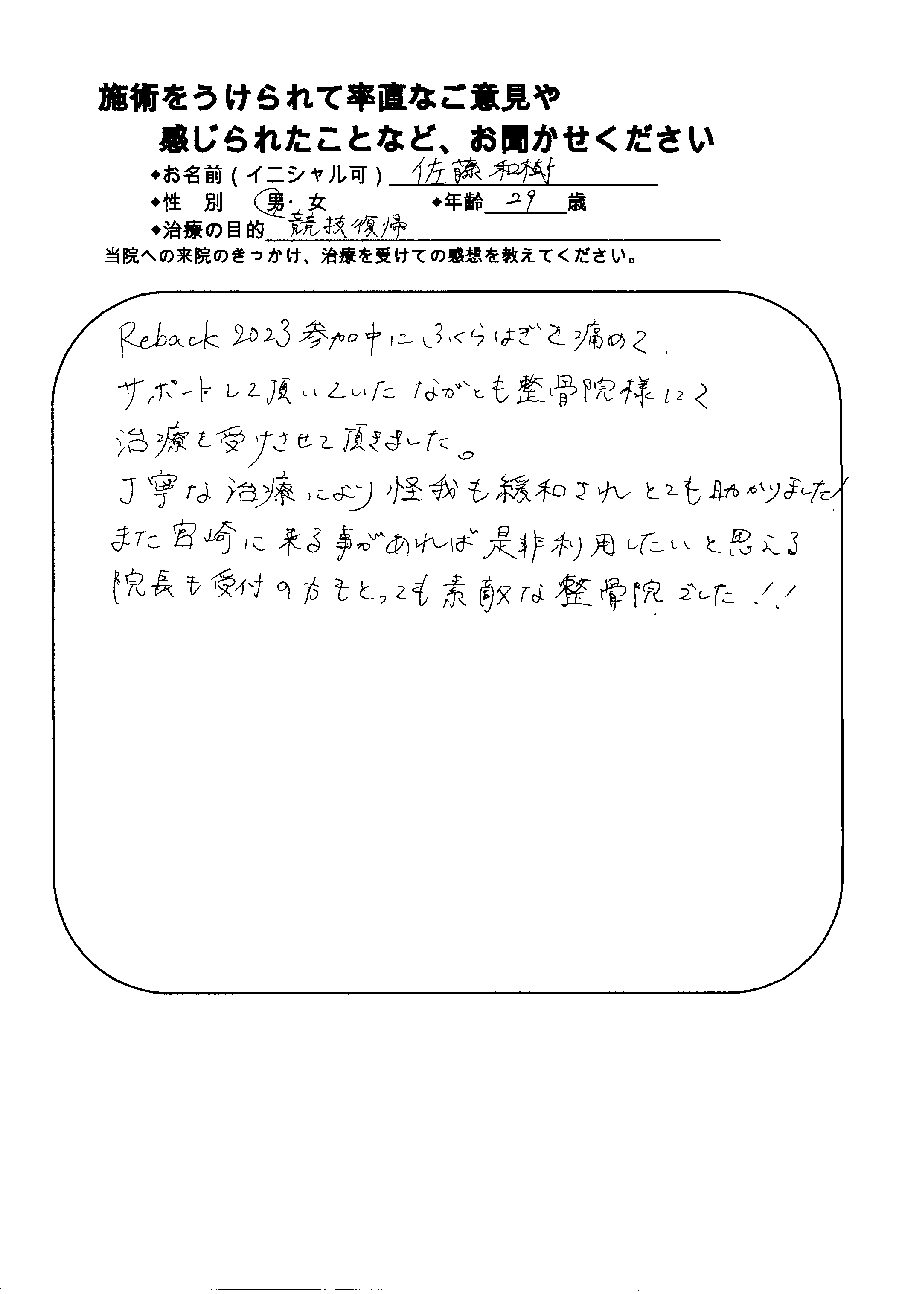 施術をうけられて率直なご意見や
感じられたことなど、お聞かせください
◆お名前(イニシャル可) 佐藤和樹
◆性 別 男・女 ◆年齢 29 歳
◆治療の目的 競技復帰
当院への来院のきっかけ、治療を受けての感想を教えてください。
Reback 2023参加中にふくらはぎを痛めて、
サポートして頂いていたながとも整骨院様にて
治療を受けさせて頂きました。
丁寧な治療により怪我も緩和されとても助かりました!
また宮崎に来る事があれば是非利用したいと思える
院長も受付の方もとっても素敵な整骨院でした!!